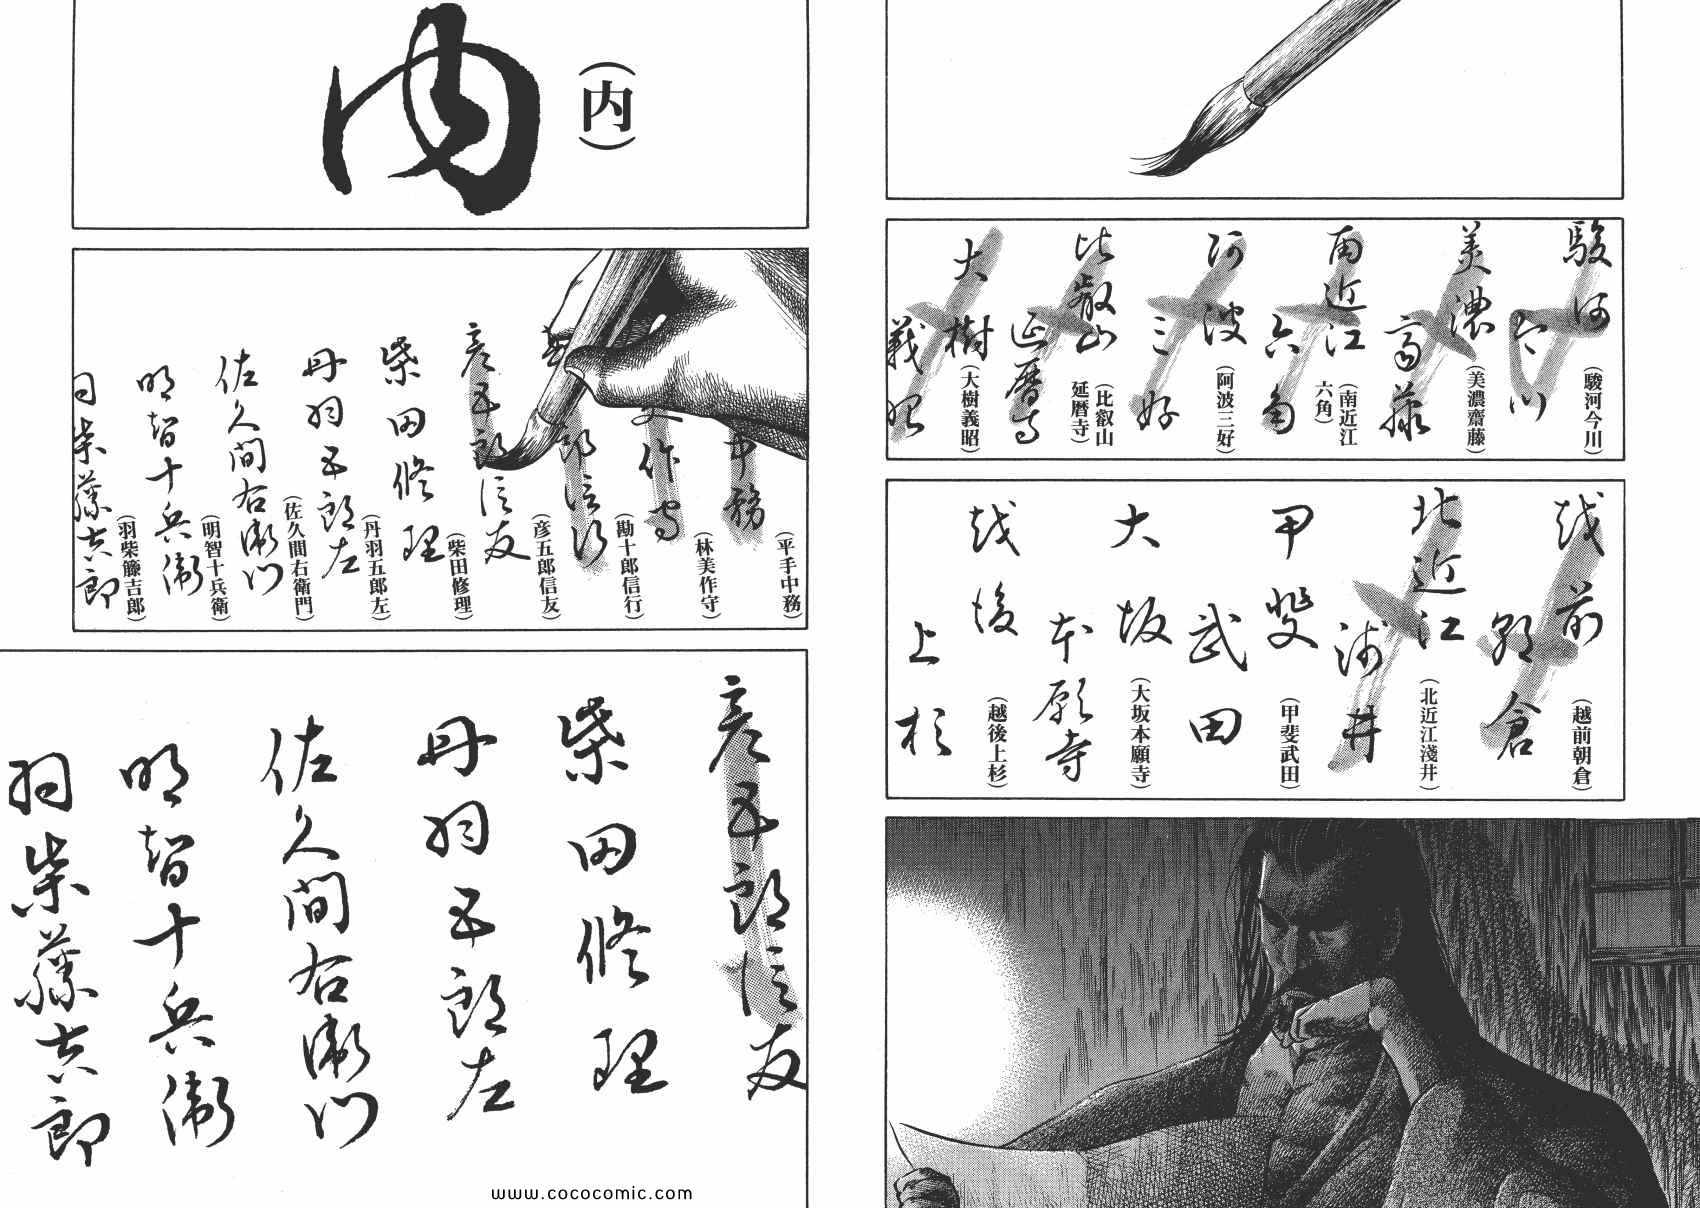 駿河
今川
(駿河今川)
美濃
斎藤
(美濃齋藤)
南近江
六角
(南近江
六角)
阿波
三好
(阿波三好)
比叡山
延暦寺
(比叡山
延暦寺)
大樹
義昭
(大樹義昭)
越前
朝倉
(越前朝倉)
北近江
浅井
(北近江淺井)
甲斐
武田
(甲斐武田)
大坂
本願寺
(大坂本願寺)
越後
上杉
(越後上杉)
(内)
内
中務
(平手中務)
作守
(林美作守)
勘
郎信行
(勘十郎信行)
彦五郎信友
(彦五郎信友)
柴田修理
(柴田修理)
丹羽五郎左
(丹羽五郎左)
佐久間右衛門
(佐久間右衛門)
明智十兵衛
(明智十兵衛)
羽柴藤吉郎
(羽柴籐吉郎)
彦五郎信友
柴田修理
丹羽五郎左
佐久間右衛門
明智十兵衛
羽柴藤吉郎
www.cococomic.com